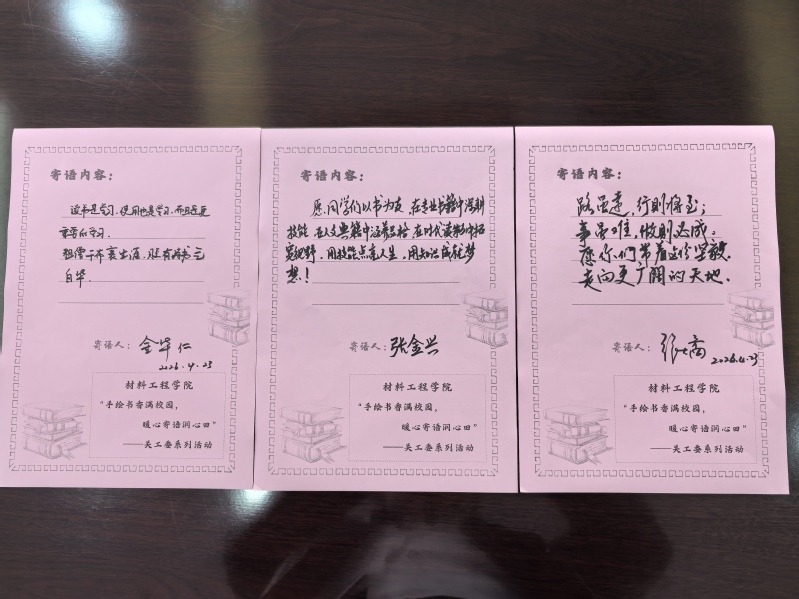 寄语内容：
读书是学习，使用也是学习，而且是更
重要的学习。
粗缯大布裹生涯，腹有诗书气
自华．
寄语人：金华仁
2026.4.23
材料工程学院
“手绘书香满校园，
暖心寄语润心田”
——关工委系列活动
寄语内容：
愿同学们以书为友，在专业书籍中深耕
技能，在人文典籍中涵养品格，在时代读物中拓
宽视野，用技能点亮人生，用知识成就梦
想！
寄语人：张金兴
材料工程学院
“手绘书香满校园，
暖心寄语润心田”
——关工委系列活动
寄语内容：
路虽远，行则将至；
事虽难，做则必成。
愿你们带着这份坚毅，
走向更广阔的天地．
寄语人：
2026.4.23
材料工程学院
“手绘书香满校园，
暖心寄语润心田”
——关工委系列活动